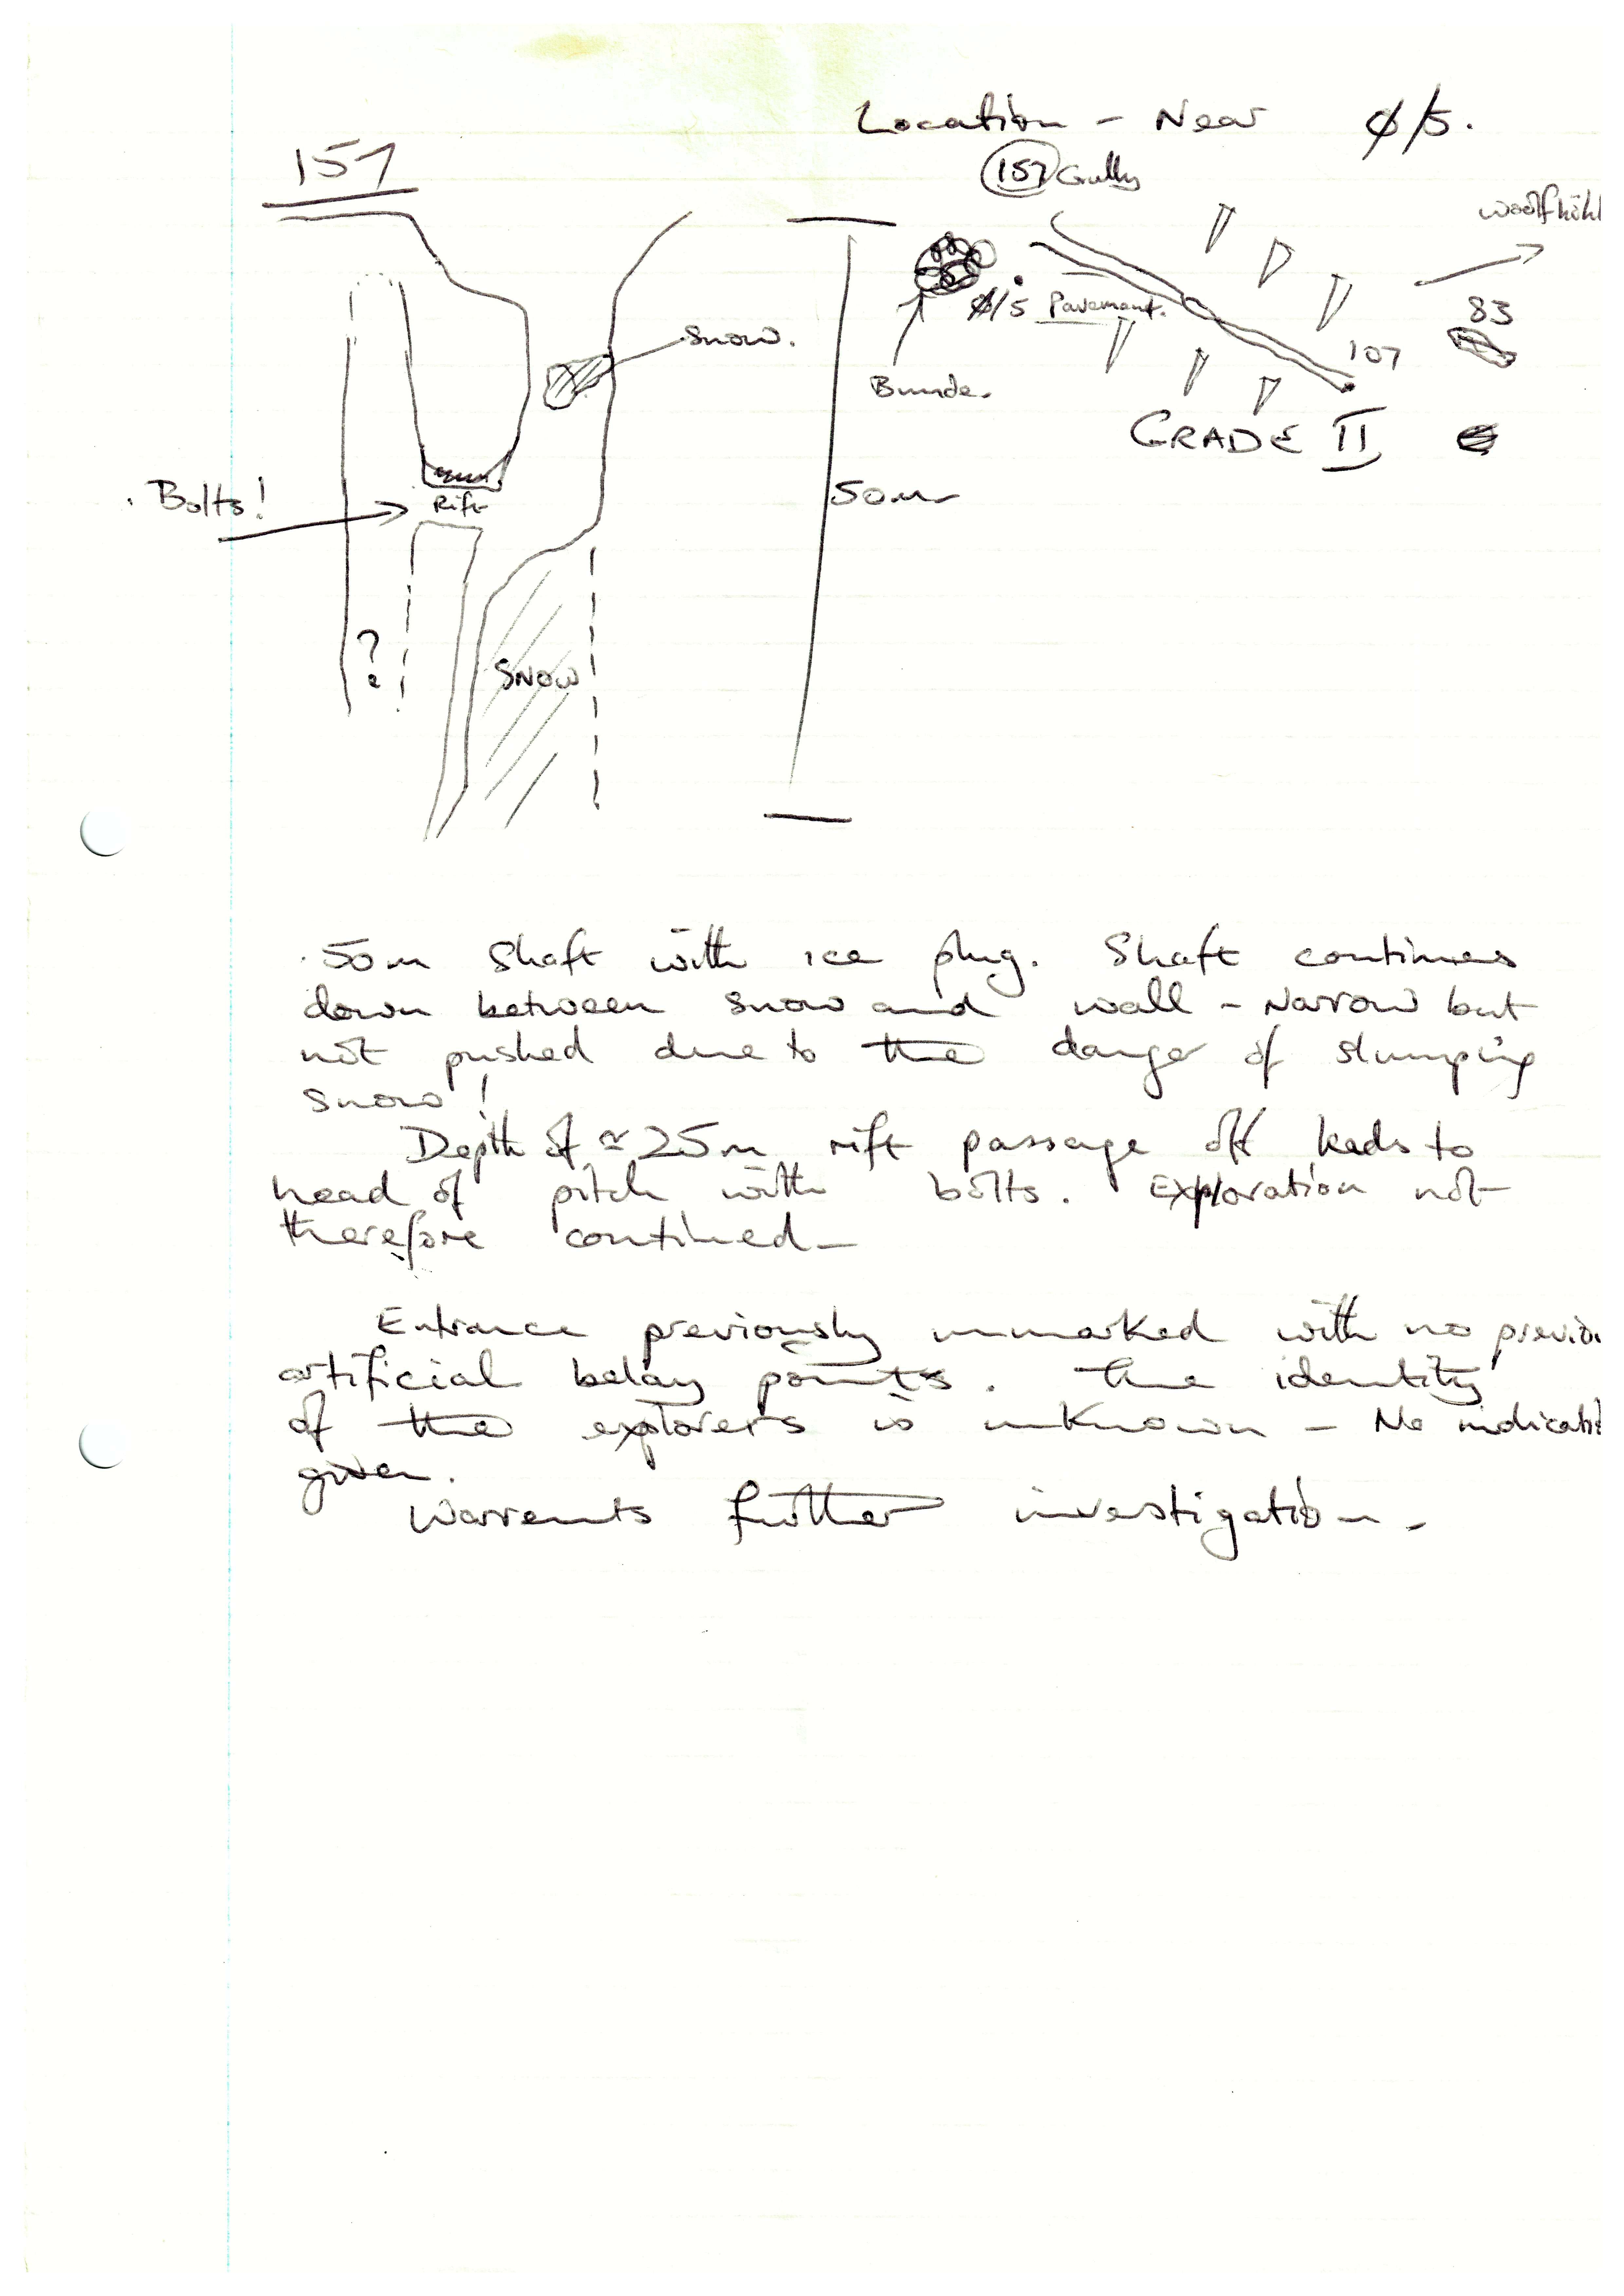 Location - Near ø/5.
157
157 Gully
woolfhöhl
ø/5 Pavement.
83
snow.
107
Bunde.
GRADE II
Bolts!
Rift
50m
?
SNOW
50m Shaft with ice plug. Shaft continues
down between snow and wall - Narrow but
not pushed due to the danger of slumping
snow!
Depth of ≃25m rift passage off leads to
head of pitch with bolts. Exploration not
therefore continued -
Entrance previously unmarked with no previou
artificial belay points. The identity
of the explorers is unknown - No indicati
given.
Warrents further investigation -